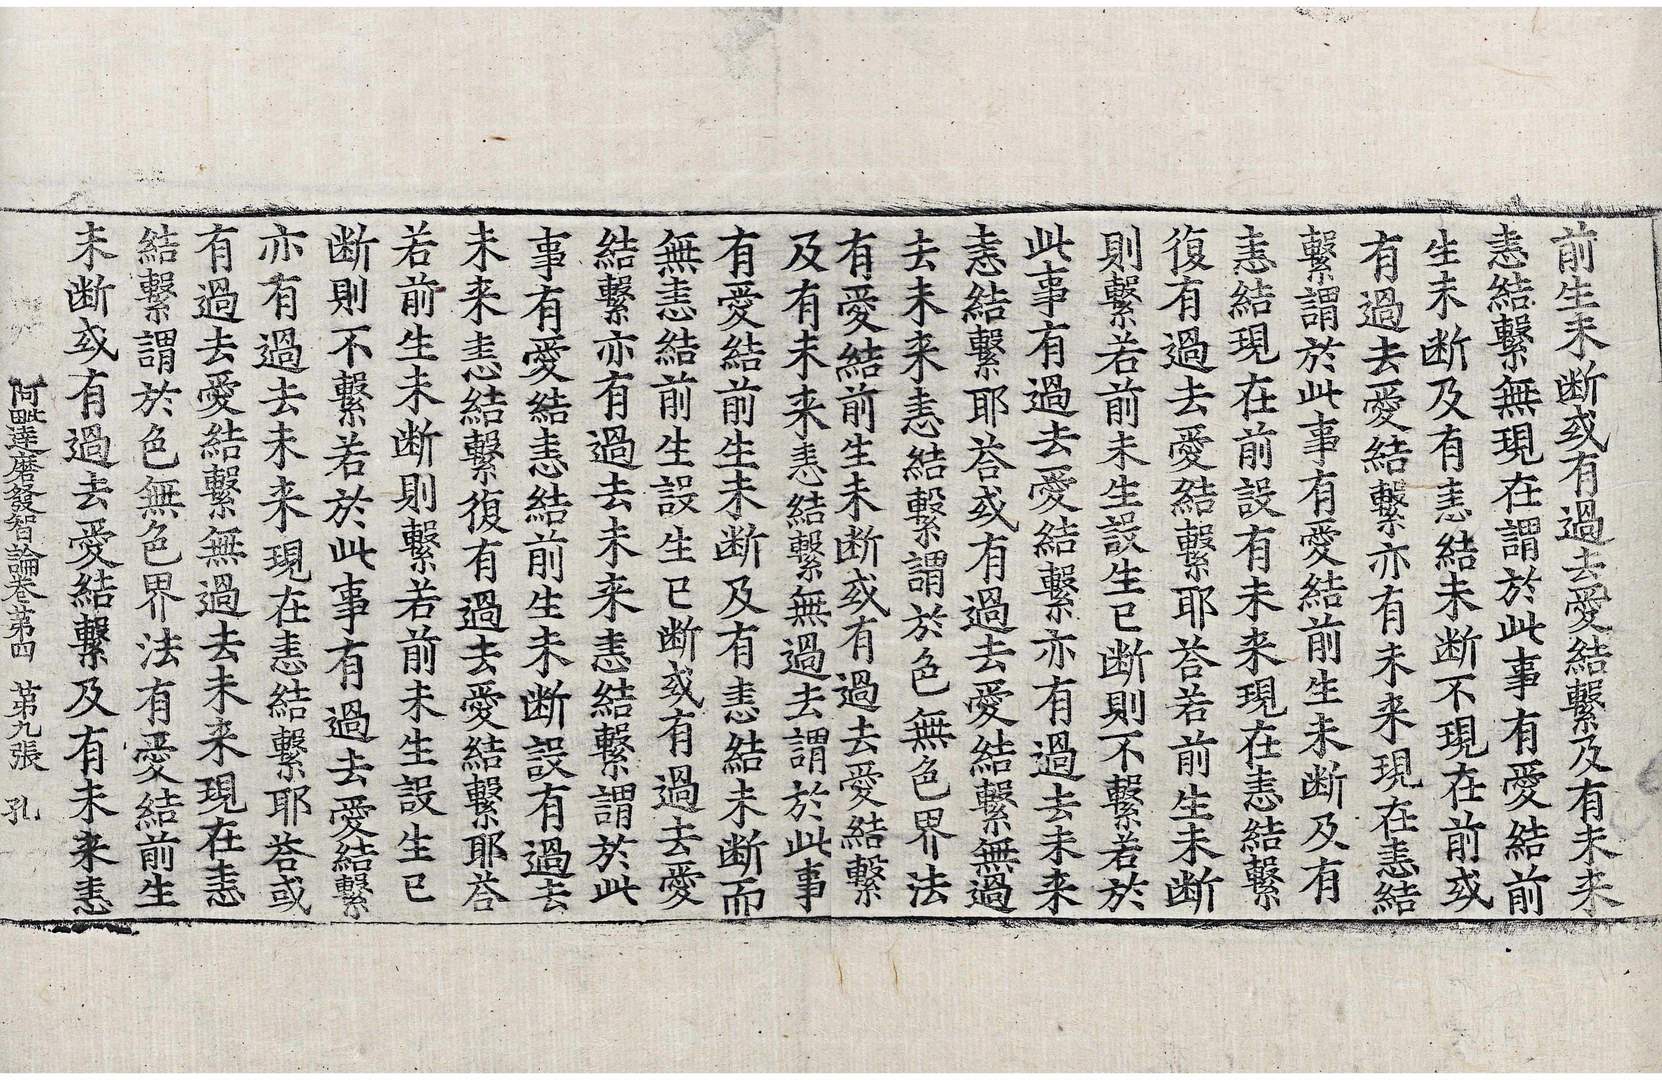 前生未断或有過去愛結繫及有未来
恚結繫無現在謂於此事有愛結前
生未断及有恚結未断不現在前或
有過去愛結繫亦有未来現在恚結
繫謂於此事有愛結前生未断及有
恚結現在前設有未来現在恚結繫
復有過去愛結繫耶荅若前生未断
則繫若前未生設生已断則不繫若於
此事有過去愛結繫亦有過去未来
恚結繫耶荅或有過去愛結繫無過
去未来恚結繫謂於色無色界法
有愛結前生未断或有過去愛結繫
及有未来恚結繫無過去謂於此事
有愛結前生未断及有恚結未断而
無恚結前生設生已断或有過去愛
結繫亦有過去未来恚結繫謂於此
事有愛結恚結前生未断設有過去
未来恚結繫復有過去愛結繫耶荅
若前生未断則繫若前未生設生已
断則不繫若於此事有過去愛結繫
亦有過去未来現在恚結繫耶荅或
有過去愛結繫無過去未来現在恚
結繫謂於色無色界法有愛結前生
未断或有過去愛結繫及有未来恚
阿毗達磨發智論卷第四 第九張 孔